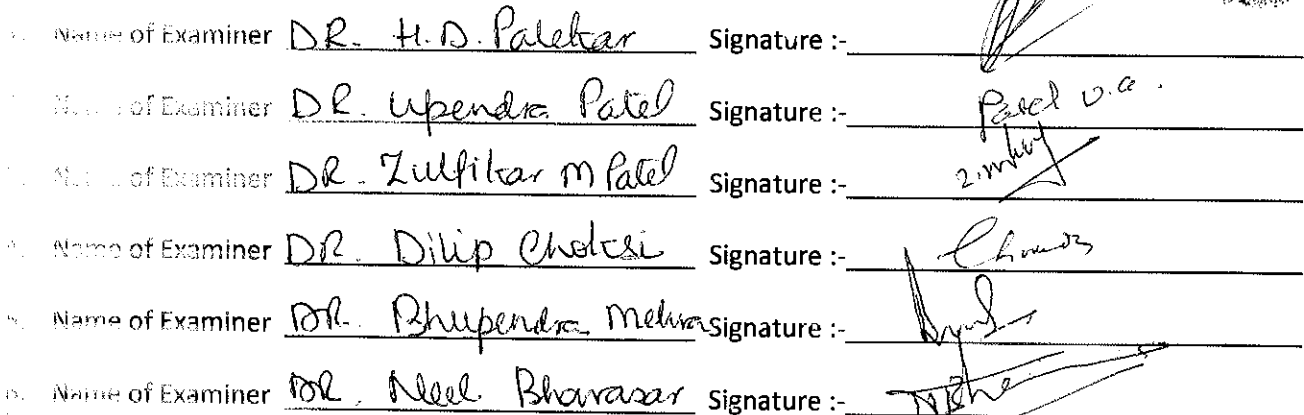 Name of Examiner DR. H.D. Palekar Signature :-
of Examiner DR. Upendra Patel Signature :- Patel U.A.
of Examiner DR. Zulfikar M Patel Signature :-
Name of Examiner DR. Dilip Choksi Signature :-
Name of Examiner DR. Bhupendra Mehra Signature :-
Name of Examiner DR. Neel Bhavasar Signature :-